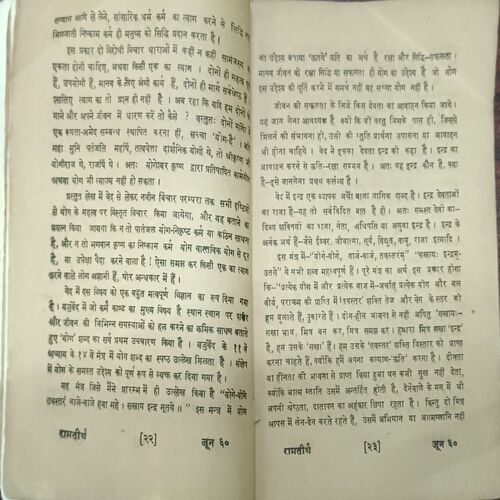 सन्यास आदि ले लेने, सांसारिक धर्म कर्म का त्याग करने से सिद्धि नहीं
मिलजाती निष्काम कर्म ही मनुष्य को सिद्धि प्रदान करता है।
इस प्रकार दो विरोधी विचार धाराओं में कहीं न कहीं सामंजस्य
एकता होनी चाहिए, अथवा किसी एक का त्याग । दोनों ही महत्व पूर्ण
हैं, उपयोगी हैं, मानव के लिए अंगी कार्य हैं, दोनों ही मार्ग सर्वश्रेष्ठ हैं
इसलिए त्याग का तो प्रश्न ही नहीं है । अब रहा कि यदि हम दोनों को
माने और अपने जीवन में धारण करें तो कैसे ? वस्तुतः दोनों योगों में
एक रूपता-अभेद सम्बन्ध स्थापित करना हीं, सच्चा 'योग-है' ।
महा मुनि पतंजलि महर्षि, तत्ववेत्ता दार्शनिक योगी थे, तो श्रीकृष्ण भी
योगीराज थे, राजर्षि थे । अतः योगेश्वर कृष्ण द्वारा प्रतिपादित कर्मयोग
अथवा योग भी त्याज्य नहीं हो सकता ।
प्रस्तुत लेख में वेद से लेकर नवीन विचार परम्परा तक सभी दृष्टियों
से योग के महत्व पर विस्तृत विचार किया जायेगा, और यह बताने का
प्रयत्न किया जायगा कि न तो पातंजल योग-निकृष्ट कर्म या कठिन साधना
है, और न तो भगवान कृष्ण का निष्काम कर्म योग वास्तविक योग से दूर
है, या उपेक्षा पैदा करने वाला है ! ऐसा समझ कर किसी एक का त्याग
करने वाले लोग अज्ञानी हैं, घोर अन्धकार में हैं।
वेद में इस विषय को एक बहुत महत्वपूर्ण विज्ञान का रूप दिया गया
है। यजुर्वेद में जो कर्म काण्ड का मुख्य विषय है स्थान स्थान पर शरीर
और जीवन की विभिन्न समस्याओं को हल करने का क्रमिक साधन बताते
हुए 'योग' शब्द का सर्व प्रथम उच्चारण किया है। यजुर्वेद के ११ वें
अध्याय के १४ वें मंत्र में योग शब्द का स्पष्ट उल्लेख मिलता है । संक्षेप
में योग के समस्त उद्देश्य को पूर्ण रूप से व्यक्त कर दिया गया है।
यह मंत्र जिसे मैंने प्रारम्भ में ही उल्लेख किया है "योगे-योगे
तवस्तरं वाजे-वाजे हवा महे । सखाय इन्द्र मूतये ॥" इस मन्त्र में योग
रामतीर्थ [२२] जून ६०
का उद्देश्य बताया 'ऊतये' ऊति का अर्थ है रक्षा और सिद्धि-सफलता।
मानव जीवन को रक्षा सिद्धि या सफलता ही योग का उद्देश्य है जो योग
इस उद्देश्य की पूर्ति करने में समर्थ नहीं वह सच्चा योग नहीं है।
जीवन की सफलता के लिये किस देवता का आवाहन किया जाये।
यह जान लेना आवश्यक है क्यों कि जो वस्तु जिसके पास हो, जिससे
मिलने की संभावना हो, उसी की स्तुति प्रार्थना उपासना या आवाहन
भी होना चाहिये । वेद ने इसका देवता इन्द्र को कहा है । इन्द्र का
आवाहन करने से ऊति-रक्षा सम्भव है । अतः वह इन्द्र कौन है, क्या
है-इसे जानलेना प्रथम कर्तव्य है ।
वेद में इन्द्र एक व्यापक अर्थों वाला यागिक शब्द है। इन्द्र देवताओं
का राजा है-यह तो सर्वविदित बात है ही। अतः समस्त देवों का-
दिव्य शक्तियों का राजा, नेता, अधिपति या अगुवा इन्द्र है । इन्द्र के
अनेक अर्थ हैं-जैसे ईश्वर, जीवात्मा, सूर्य, विद्युत, वायु, राजा इत्यादि ।
इस मंत्र में-"योगे-योगे, वाजे-वाजे, तवस्तरम्" "सखायः इन्द्रम्-
ऊतये" ये सभी शब्द महत्वपूर्ण हैं। पूरे मंत्र का अर्थ इस प्रकार होगा
कि-"प्रत्येक योग में और प्रत्येक वाज में-अर्थात् प्रत्येक योग और बल
वीर्य, पराक्रम की प्राप्ति में 'तवस्तर' शक्ति तेज और वेग के स्तर को
हम बुलाते हैं, पुकारते हैं। दीन-हीन भावना से नहीं अपितु 'सखायः-
सखा भाव, मित्र बन कर, मित्र समझ कर। हमारा मित्र सखा 'इन्द्र'
है, हम उसके 'सखा' हैं। हम उसके 'तवस्तर' शक्ति विस्तार को प्राप्त
करना चाहते हैं, क्योंकि हमें अपना कल्याण-'ऊति' करना है। दीनता
या हीनता की भावना से प्राप्त किया हुआ धन कभी सुख नहीं देता,
क्योंकि आत्म ग्लानि उसमें अन्तर्हित होती है, देनेवाले के मन में भी
अपनी श्रेष्ठता, दातापन का अहंकार छिपा रहता है । किन्तु दो मित्र
आपस में लेन-देन करते रहते हैं, उसमें अभिमान या आत्मग्लानि नहीं
रामतीर्थ [२३] जून ६०